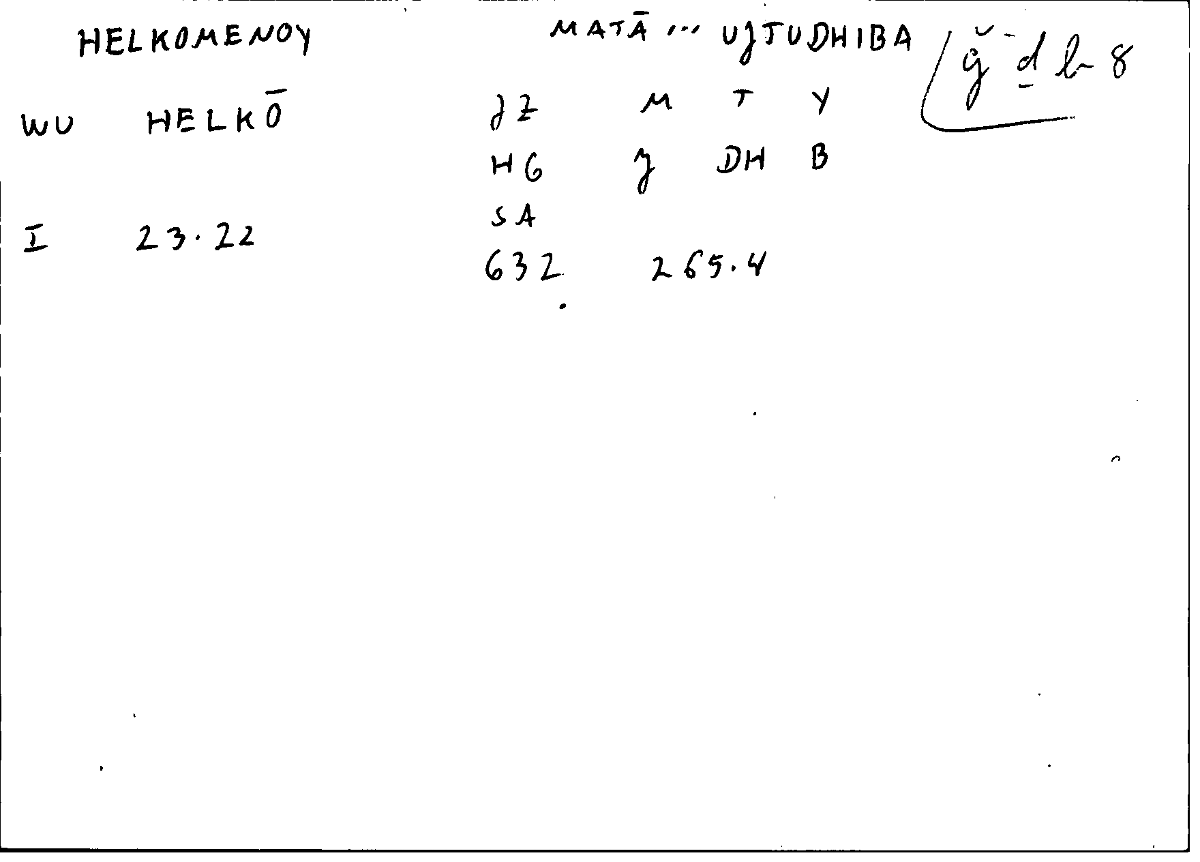 HELKOMENOY MATĀ ... UJTUDHIBA ǧ d̲ b 8
WU HELKŌ JZ M T Y
HG J DH B
SA
I 23.22
632 265.4